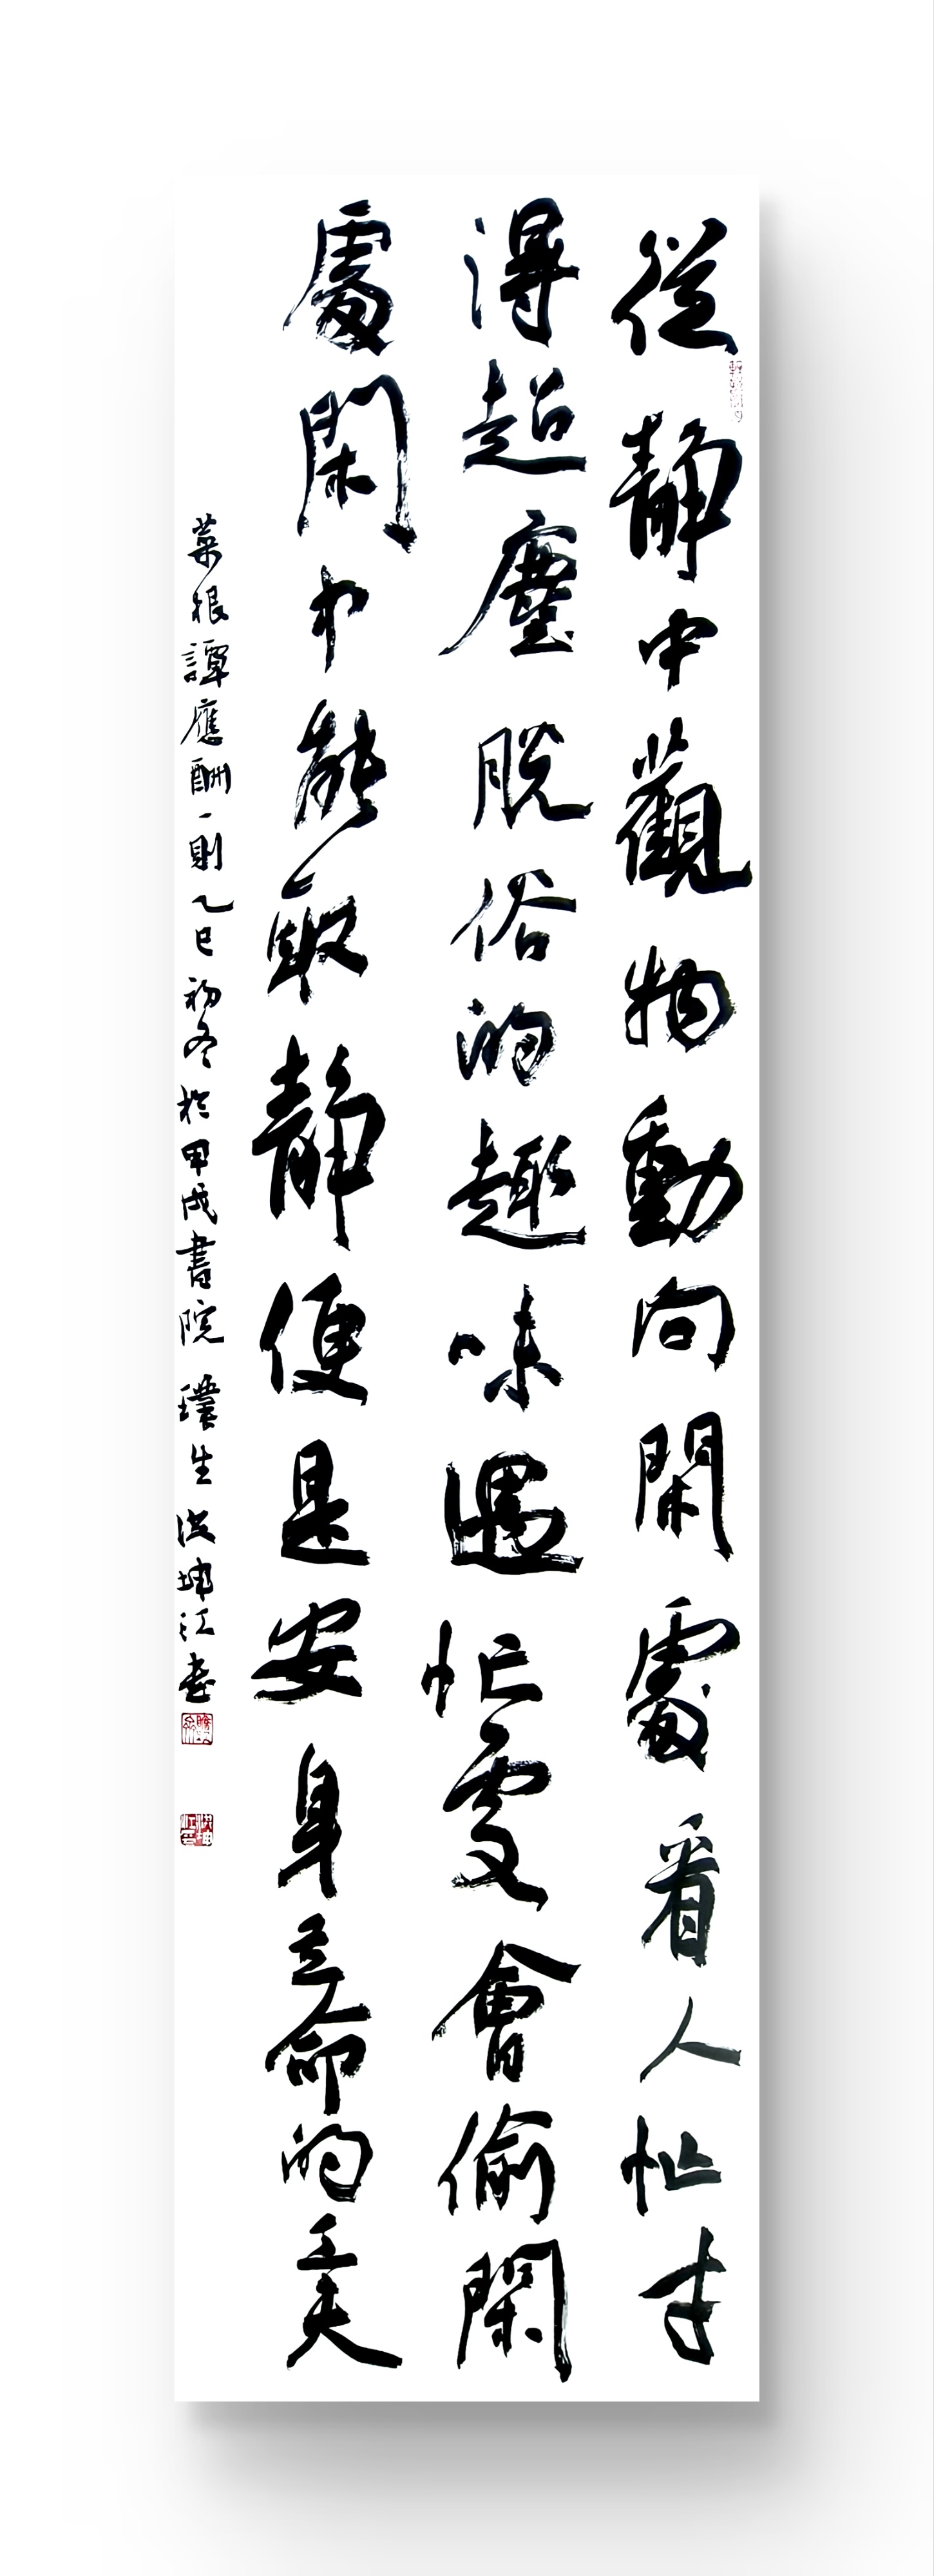 從靜中觀物動向閑處看人忙才
得超塵脫俗的趣味遇忙處會偷閑
處閙中能取靜便是安身立命的工夫
菜根譚應酬一則乙巳初冬於甲成書院璞生洪坤江書